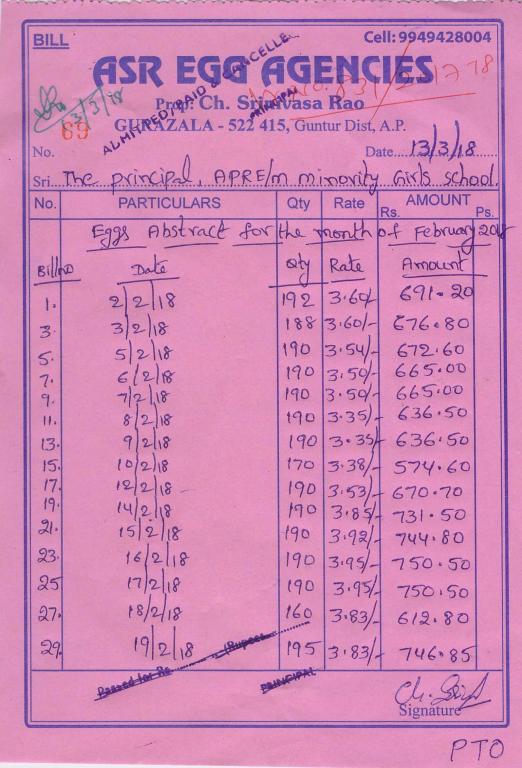 BILL Cell: 9949428004
ASR EGG AGENCIES
ADMITTED/PAID & CANCELLED
PRINCIPAL
Prop: Ch. Srinivasa Rao
13/3/18
69
GURAZALA - 522 415, Guntur Dist, A.P.
No. Date 13/3/18
Sri. The principal, APRE/m minority Girls school.
No. PARTICULARS Qty Rate AMOUNT
Rs. Ps.
Eggs Abstract for the month of February 2018
Bill no Date Qty Rate Amount
1. 2/2/18 192 3.60/- 691.20
3. 3/2/18 188 3.60/- 676.80
5. 5/2/18 190 3.54/- 672.60
7. 6/2/18 190 3.50/- 665.00
9. 7/2/18 190 3.50/- 665.00
11. 8/2/18 190 3.35/- 636.50
13. 9/2/18 190 3.35/- 636.50
15. 10/2/18 170 3.38/- 574.60
17. 12/2/18 190 3.53/- 670.70
19. 14/2/18 190 3.85/- 731.50
21. 15/2/18 190 3.92/- 744.80
23. 16/2/18 190 3.95/- 750.50
25 17/2/18 190 3.95/- 750.50
27. 18/2/18 160 3.83/- 612.80
29. 19/2/18 195 3.83/- 746.85
Passed for Rs. (Rupees
PRINCIPAL
Signature
PTO